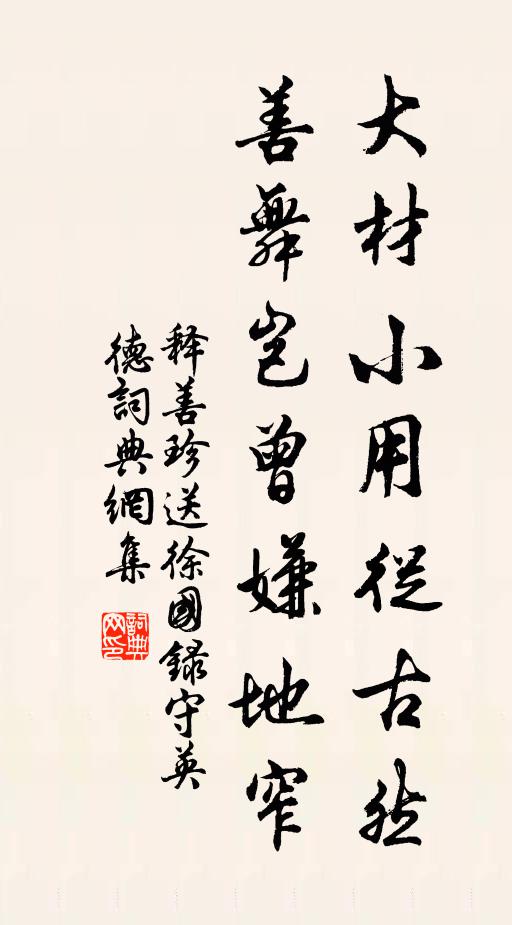 大材小用從古然
善舞岂曾嫌地窄
释善珍送徐國錄守英
德詞典網集
詞典网印